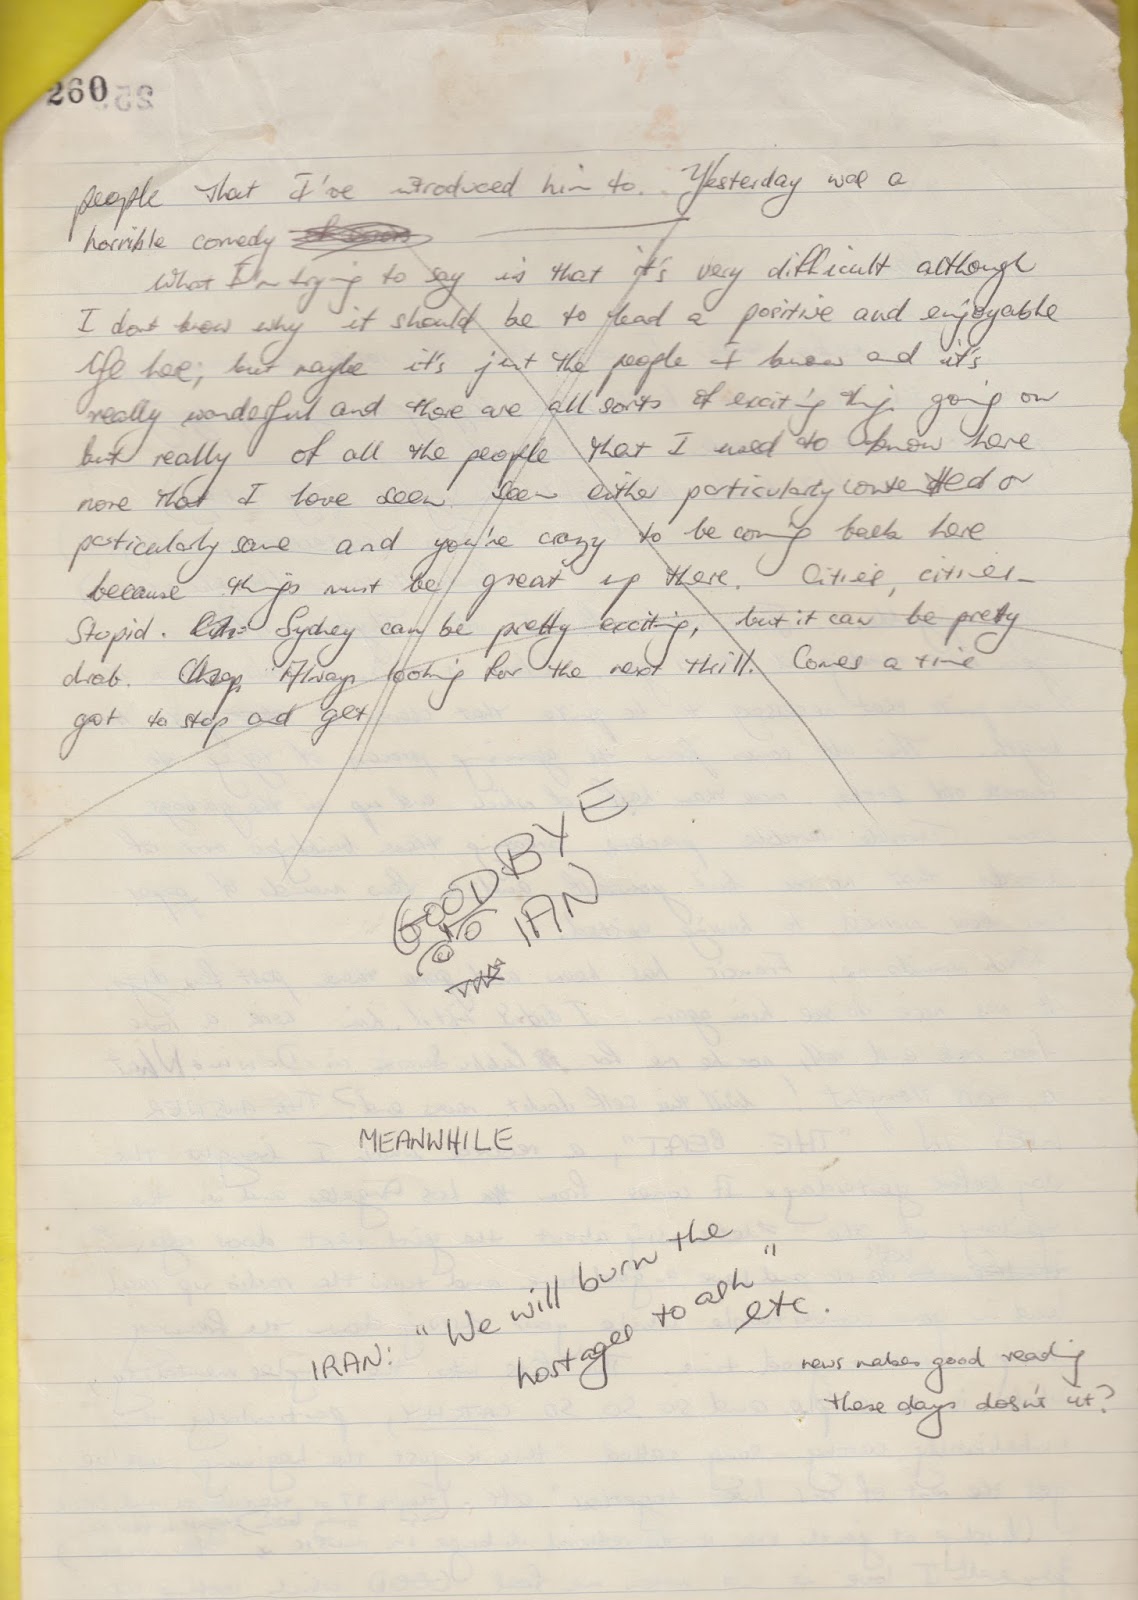 260
people that I've introduced him to. Yesterday was a
horrible comedy
What I'm trying to say is that it's very difficult although
I dont know why it should be to lead a positive and enjoyable
life here; but maybe it's just the people I know and it's
really wonderful and there are all sorts of exciting things going on
but really of all the people that I used to know here
none that I have seen seem either particularly contented or
particularly sane and you're crazy to be coming back here
because things must be great up there. Cities, cities -
Stupid. Sydney can be pretty exciting, but it can be pretty
drab. Always looking for the next thrill. Comes a time
got to stop and get
GOODBYE
IAN
MEANWHILE
IRAN: "We will burn the
hostages to ash"
etc.
news makes good reading
these days dosn't it?